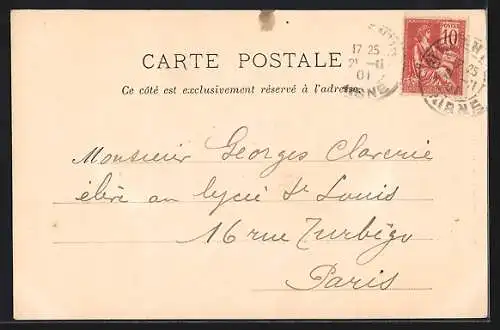 CARTE POSTALE
Ce côté est exclusivement réservé à l'adresse.
17 25
21 -11
01
10
Monsieur Georges Claverie
élève au lycée St Louis
16 rue Turbigo
Paris